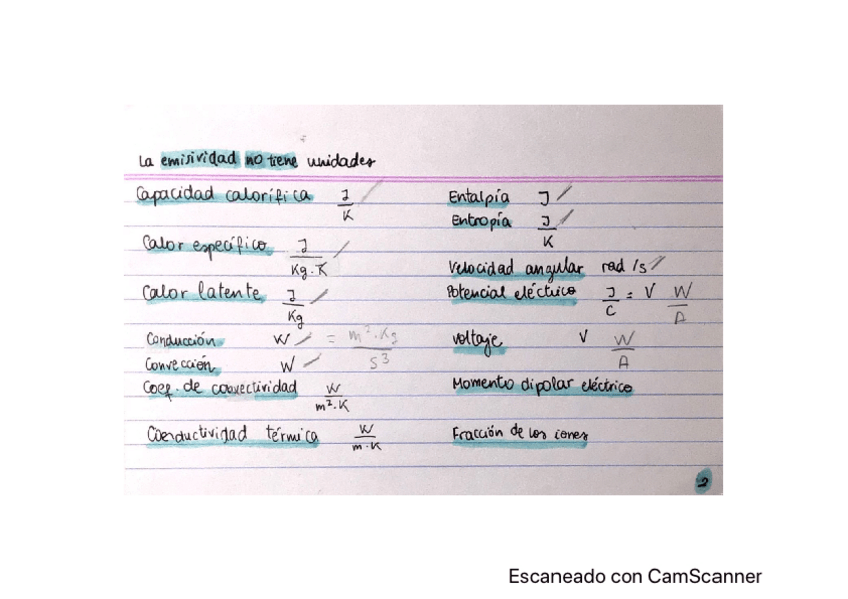 La emisividad no tiene unidades
Capacidad calorífica J/K
Calor específico J/Kg·K
Calor latente J/Kg
Conducción W = m²·Kg/s³
Convección W
Coef. de convectividad W/m²·K
Coenductividad térmica W/m·K
Entalpía J
Entropía J/K
Velocidad angular rad/s
Potencial eléctrico J/C = V W/A
Voltaje V W/A
Momento dipolar eléctrico
Fracción de los iones
2
Escaneado con CamScanner